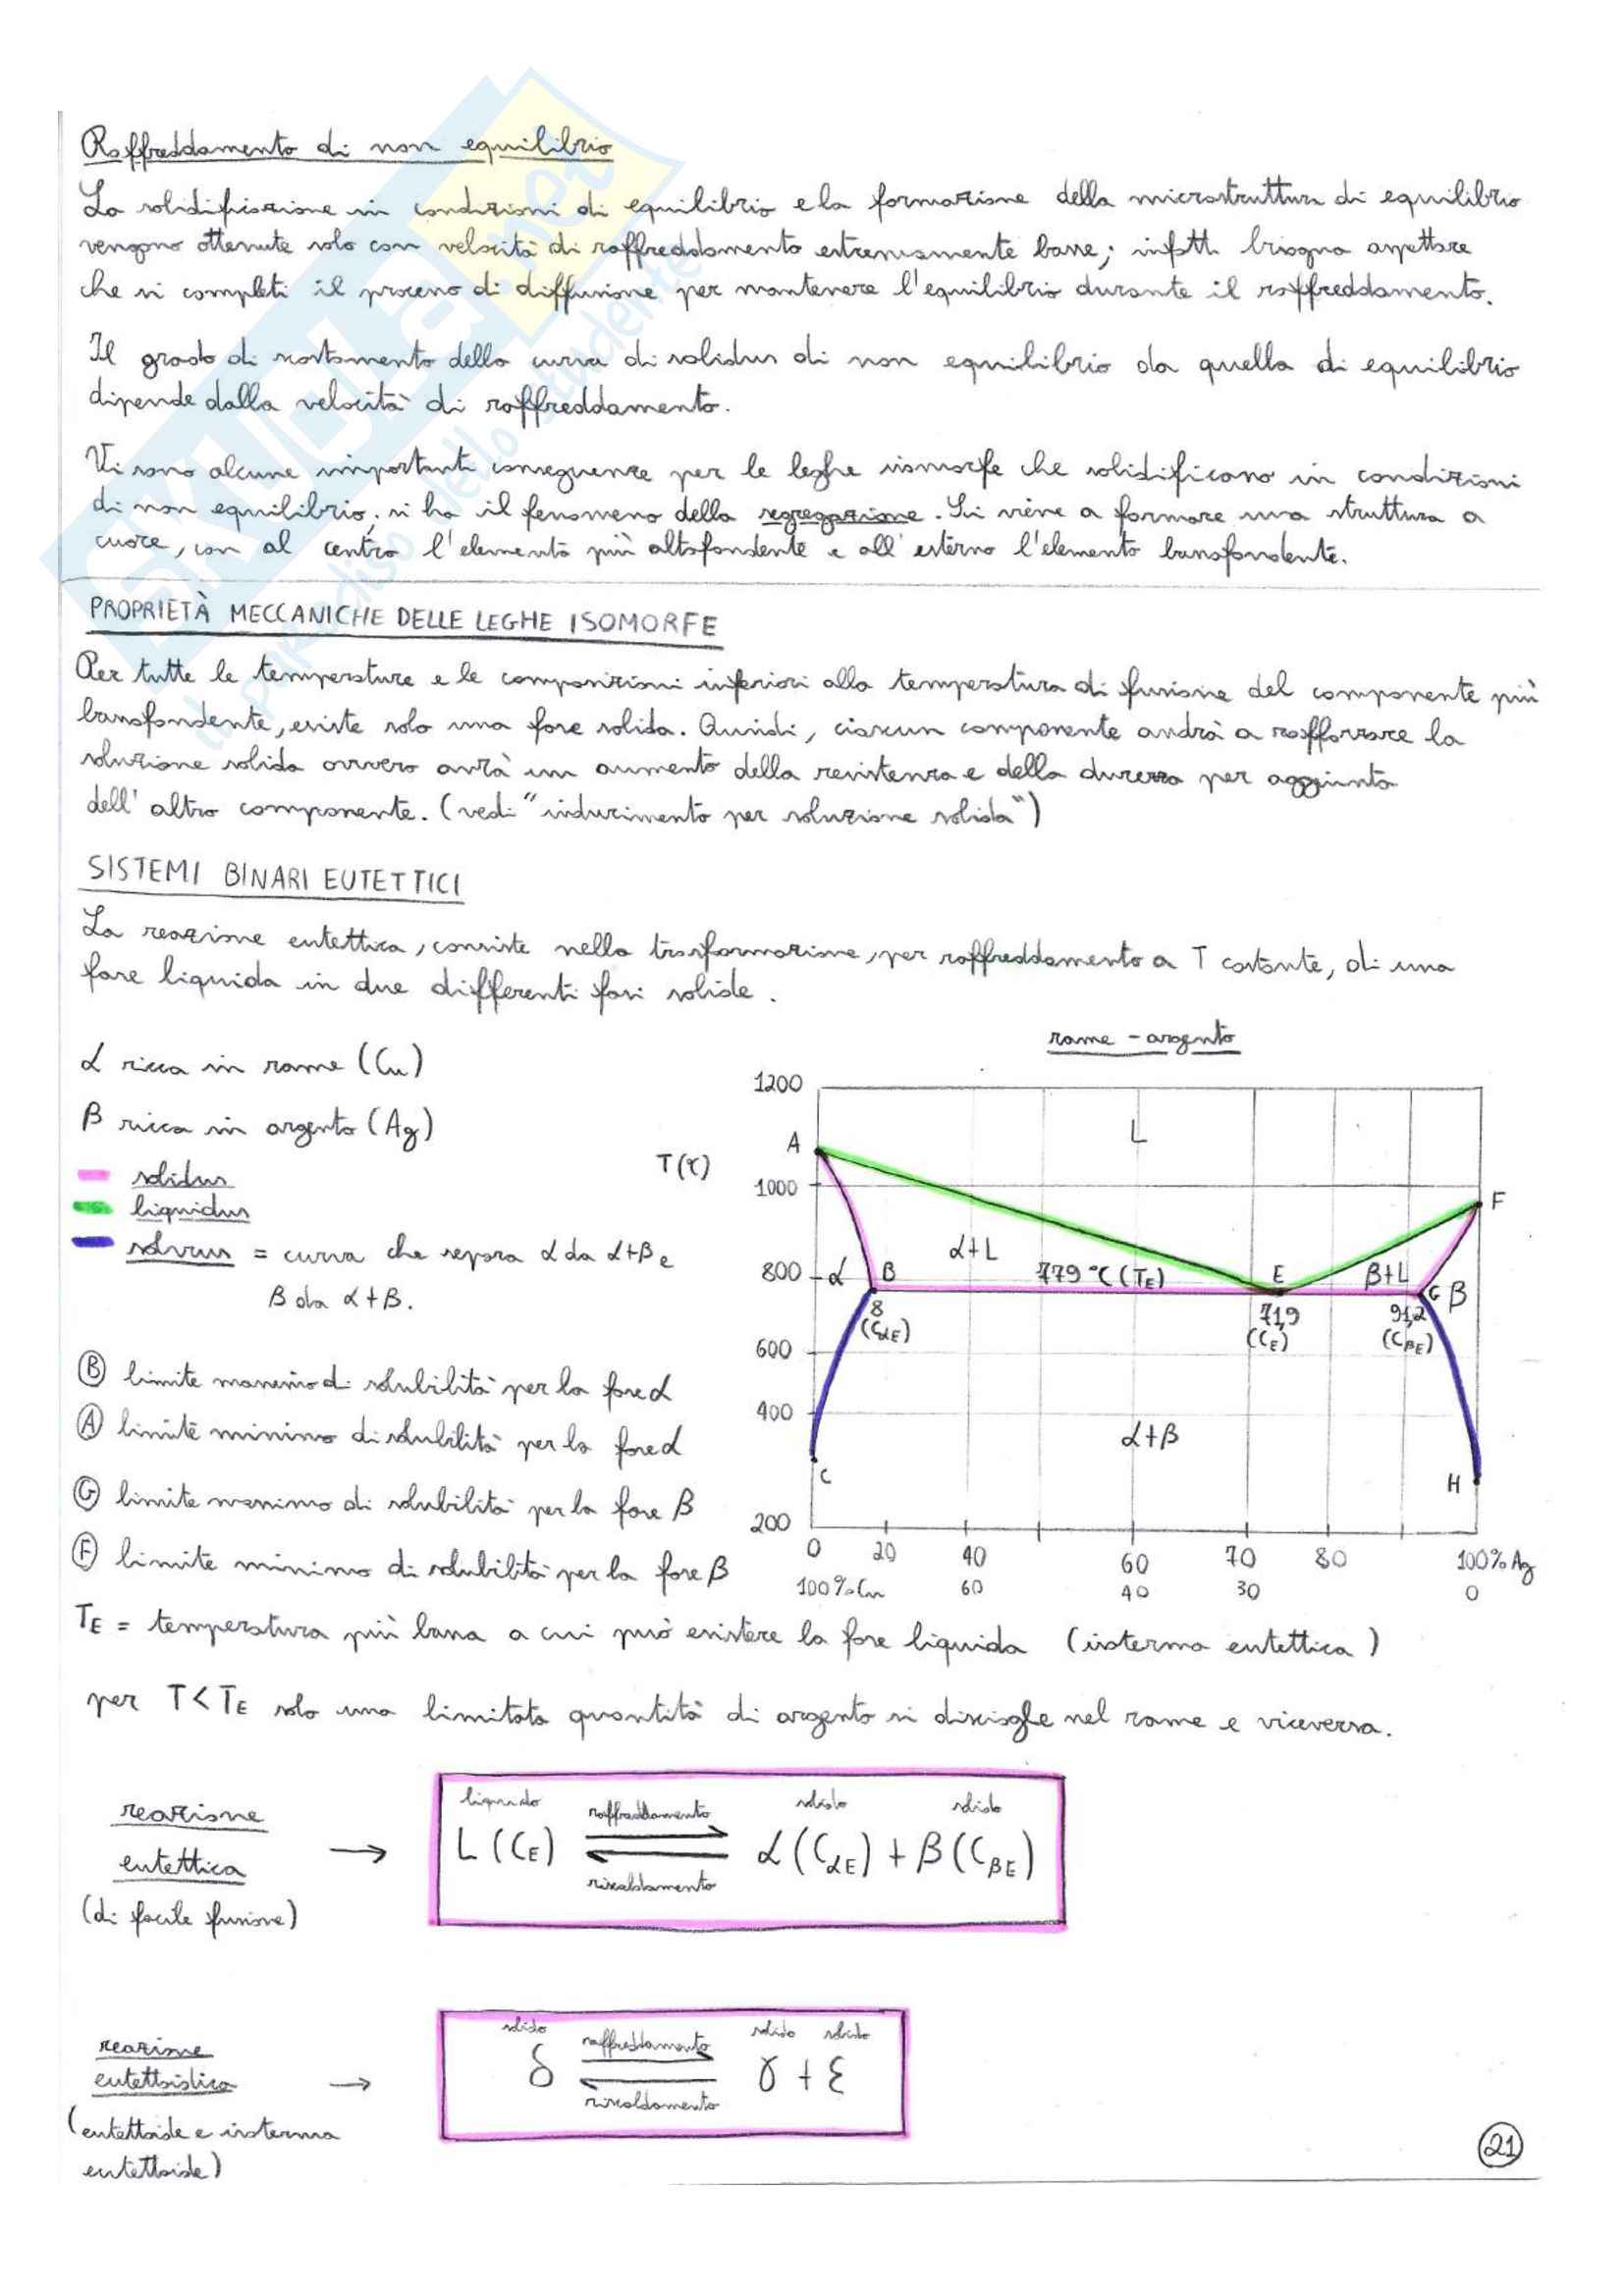 Raffreddamento di non equilibrio
La solidificazione in condizioni di equilibrio e la formazione della microstruttura di equilibrio
vengono ottenute solo con velocità di raffreddamento estremamente basse; infatti bisogna aspettare
che si completi il processo di diffusione per mantenere l'equilibrio durante il raffreddamento.
Il grado di scostamento della curva di solidus di non equilibrio da quella di equilibrio
dipende dalla velocità di raffreddamento.
Vi sono alcune importanti conseguenze per le leghe isomorfe che solidificano in condizioni
di non equilibrio; si ha il fenomeno della segregazione. Si viene a formare una struttura a
cuore, con al centro l'elemento più altofondente e all'esterno l'elemento bassofondente.
PROPRIETÀ MECCANICHE DELLE LEGHE ISOMORFE
Per tutte le temperature e le composizioni inferiori alla temperatura di fusione del componente più
bassofondente, esiste solo una fase solida. Quindi, ciascun componente andrà a rafforzare la
soluzione solida ovvero avrà un aumento della resistenza e della durezza per aggiunta
dell'altro componente. (vedi "indurimento per soluzione solida")
SISTEMI BINARI EUTETTICI
La reazione eutettica, consiste nella trasformazione, per raffreddamento a T costante, di una
fase liquida in due differenti fasi solide.
α ricca in rame (Cu)
β ricca in argento (Ag)
solidus
liquidus
solvus = curva che separa α da α+β e
β da α+β.
rame - argento
1200
T(°C)
A
1000
L
F
α+L
800
α
B
779 °C (TE)
E
β+L
G
β
8
(CαE)
71,9
(CE)
91,2
(CβE)
600
400
α+β
C
H
200
0 20 40 60 70 80 100% Ag
100% Cu 60 40 30 0
Ⓑ limite massimo di solubilità per la fase α
Ⓐ limite minimo di solubilità per la fase α
Ⓖ limite massimo di solubilità per la fase β
Ⓕ limite minimo di solubilità per la fase β
TE = temperatura più bassa a cui può esistere la fase liquida (isoterma eutettica)
per T < TE solo una limitata quantità di argento si discioglie nel rame e viceversa.
reazione
eutettica
(di facile fusione)
→
liquido raffreddamento solido solido
L (CE) ⇌ α (CαE) + β (CβE)
riscaldamento
reazione
eutettoidica
(eutettoide e isoterma
eutettoide)
→
solido raffreddamento solido solido
δ ⇌ γ + ε
riscaldamento
21
SKUOLA.net
il paradiso dello studente